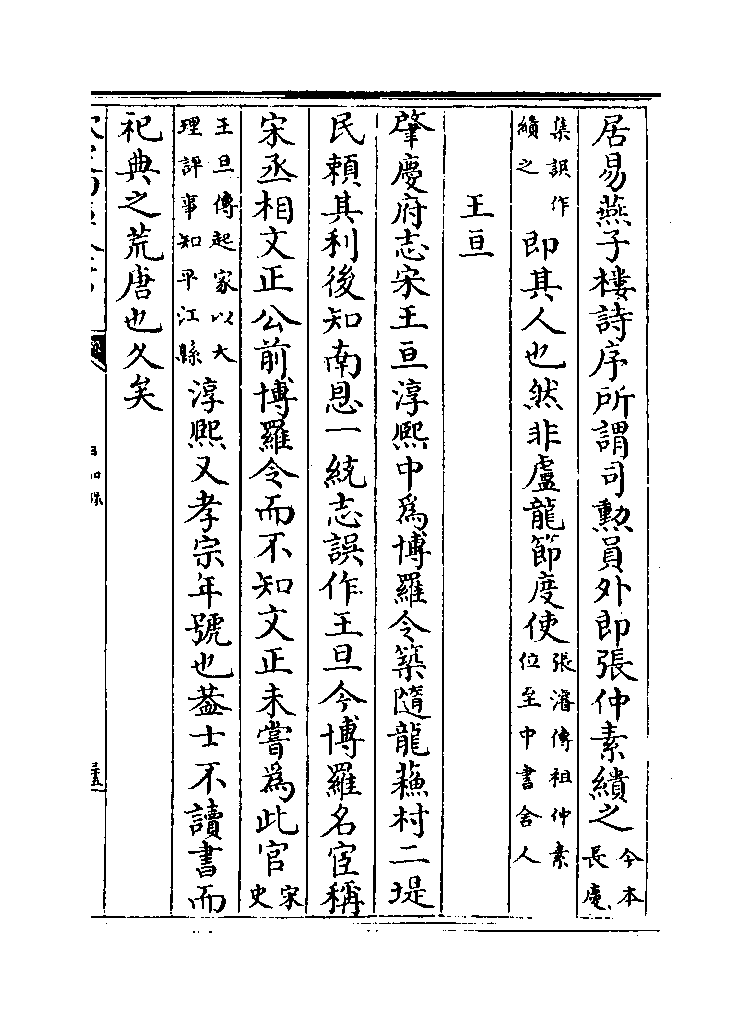 居易燕子樓詩序所謂司勲員外即張仲素繢之今本長慶
集誤作繢之即其人也然非盧龍節度使張濬傳祖仲素位至中書舍人
王亘
肇慶府志宋王亘淳熙中為博羅令築隨龍蘓村二堤
民賴其利後知南恩一統志誤作王旦今博羅名宦稱
宋丞相文正公前博羅令而不知文正未嘗為此官宋史
王旦傳起家以大理評事知平江縣淳熙又孝宗年號也葢士不讀書而
祀典之荒唐也久矣
日知録